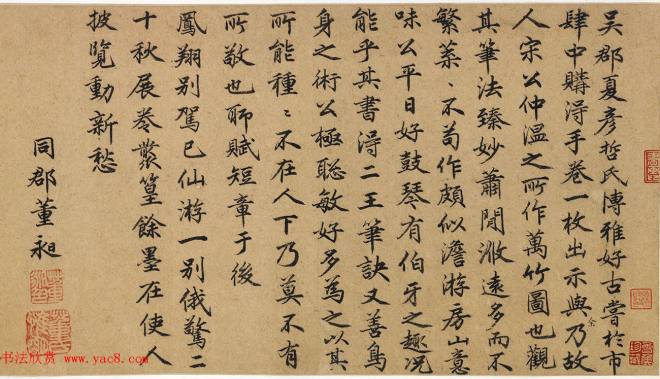 吴郡夏彦哲氏博雅好古嘗於市
肆中購得手卷一枚出示與乃故
人宋公仲温之所作萬竹圖也觀
其筆法臻妙蕭閒澂遠多而不
繁葉〻不苟作頗似澹游房山意
味公平日好鼓琴有伯牙之趣况
能乎其書得二王筆訣又善烏
身之術公極聡敏好多爲之以其
所能種〻不在人下乃莫不有
所敬也聊賦短章于後
鳳翔别駕已仙游一别俄驚二
十秋展卷叢篁餘墨在使人
披覽動新愁
同郡董昶
书法欣赏 www.yac8.com